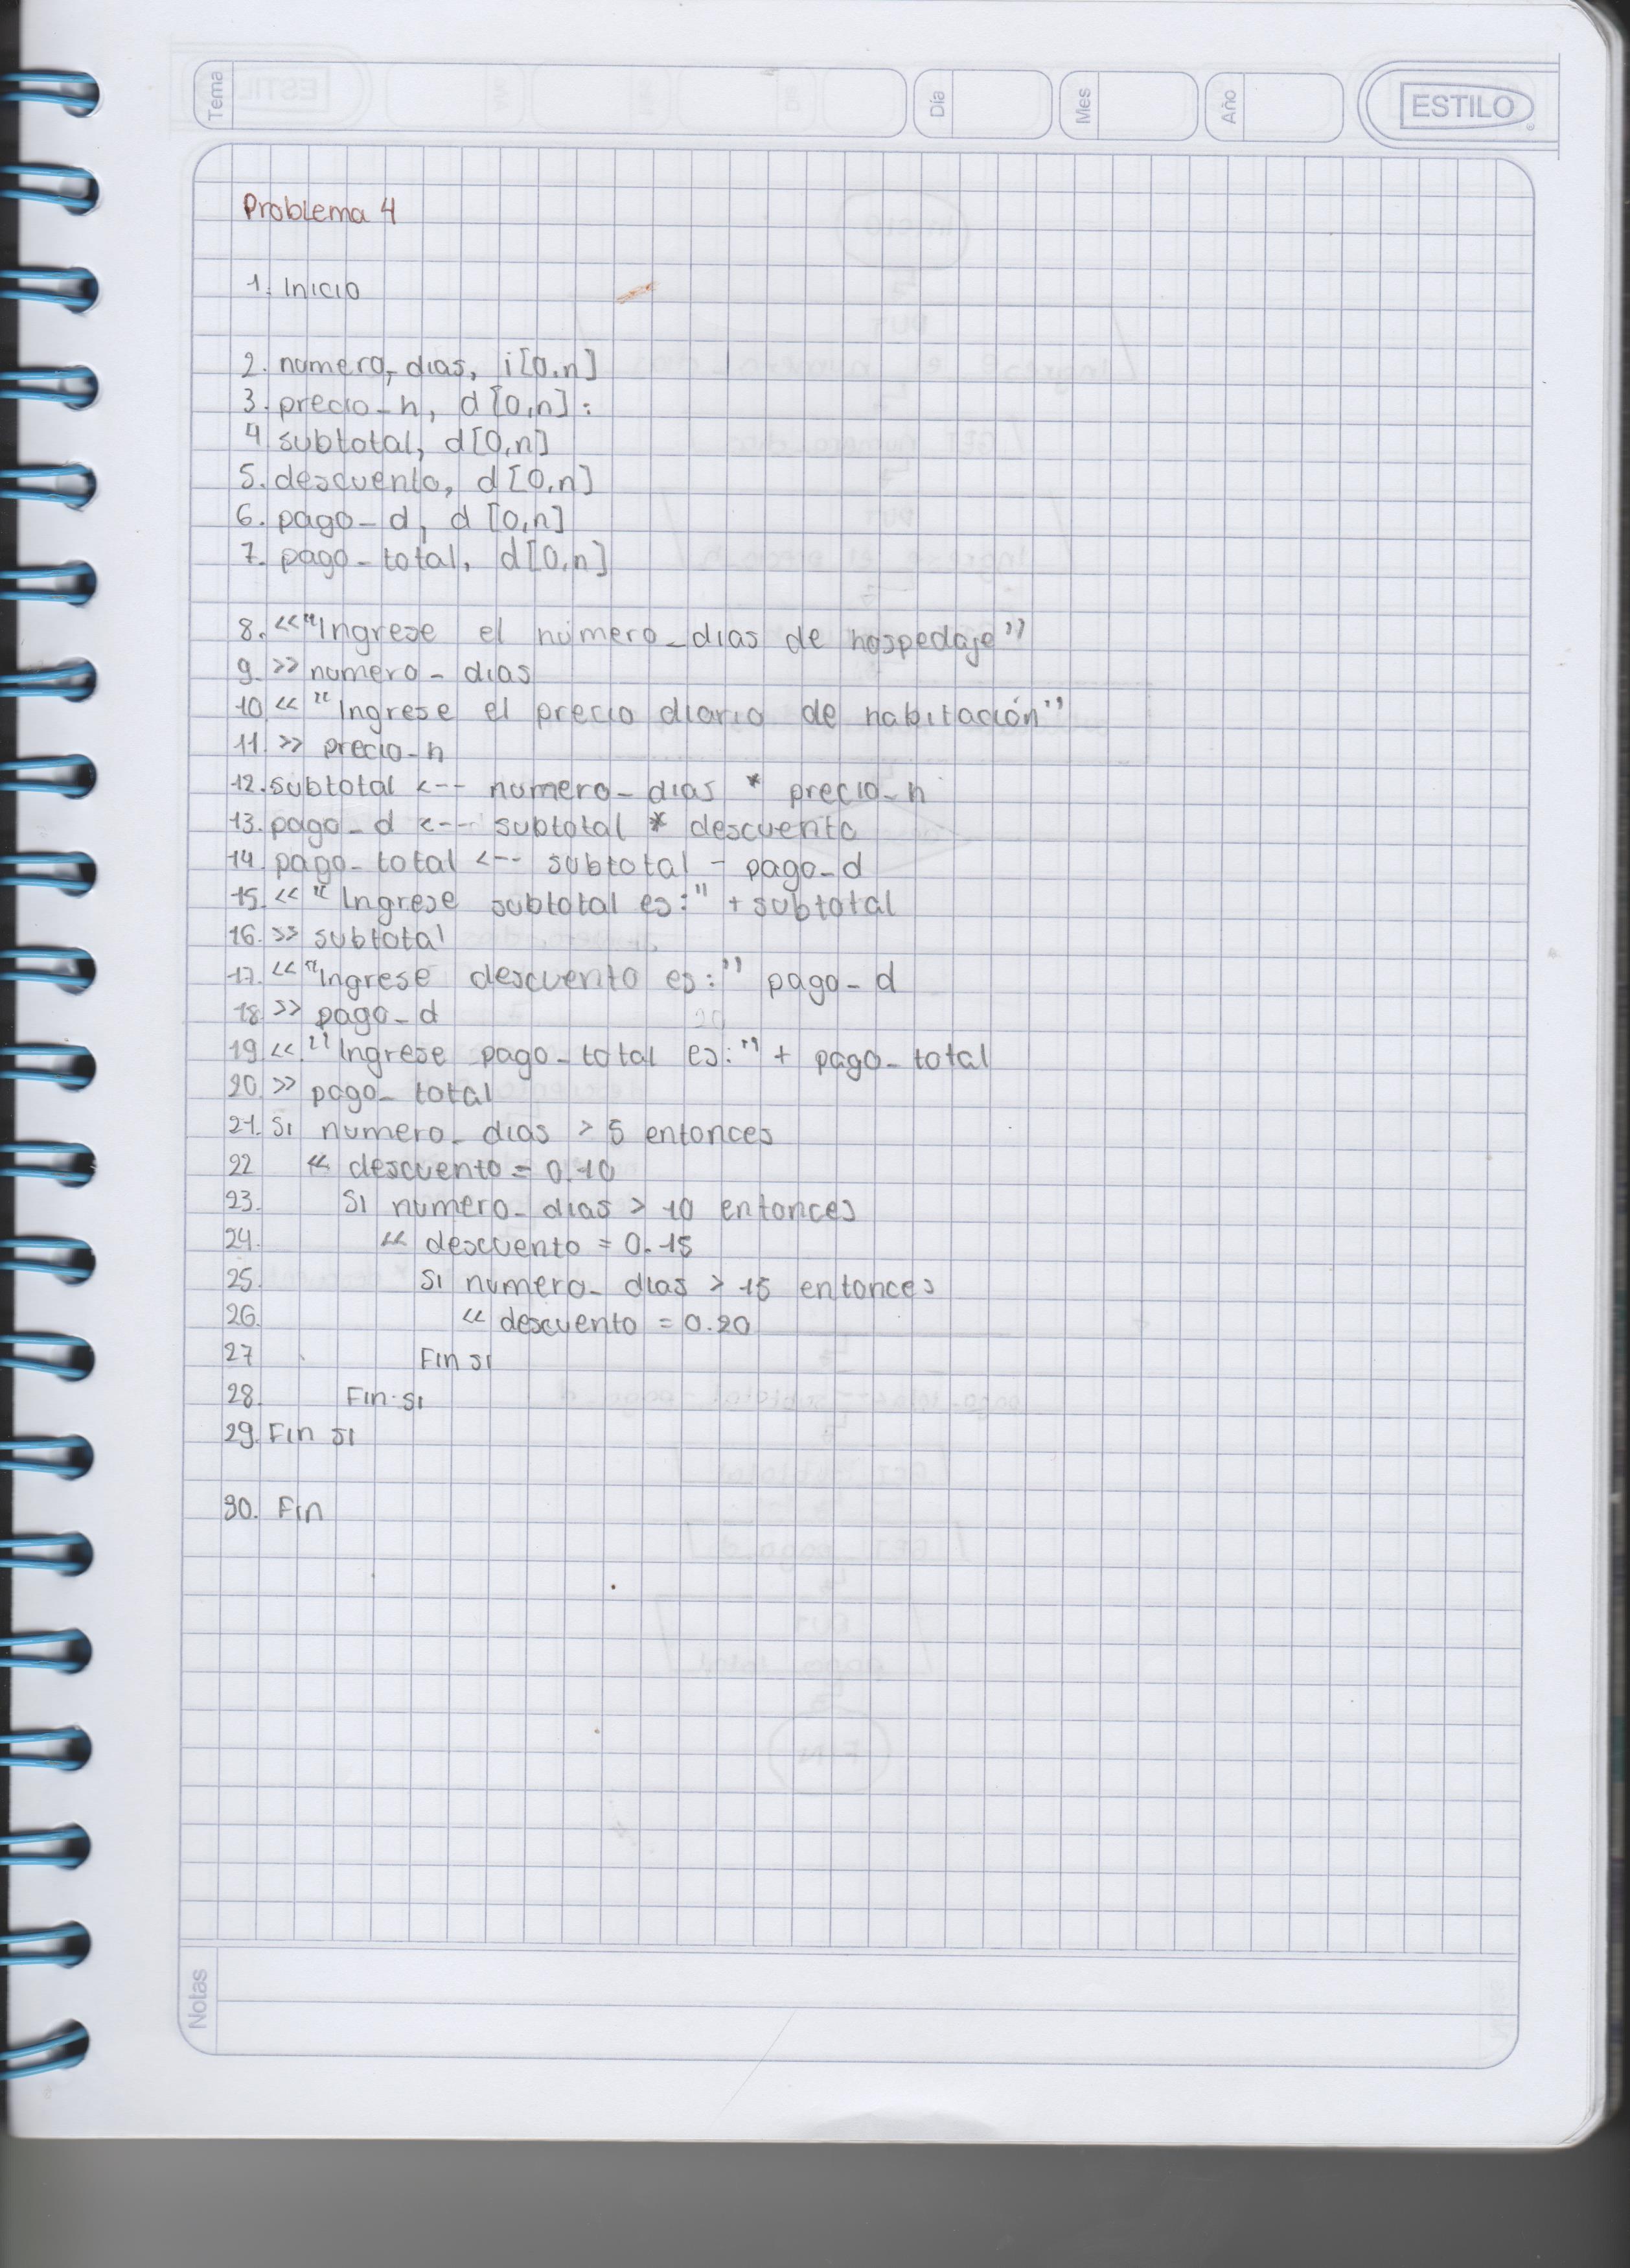 Tema
Día
Mes
Año
ESTILO
Problema 4
1. Inicio
2. numero_dias, i[0,n]
3. precio_h, d[0,n]:
4 subtotal, d[0,n]
5. descuento, d[0,n]
6. pago_d, d[0,n]
7. pago_total, d[0,n]
8. <<"Ingrese el número_dias de hospedaje"
9. >> numero_dias
10 << "Ingrese el precio diario de habitación"
11. >> precio_h
12. subtotal <-- numero_dias * precio_h
13. pago_d <-- subtotal * descuento
14. pago_total <-- subtotal - pago_d
15. << "Ingrese subtotal es:" + subtotal
16. >> subtotal
17. << "Ingrese descuento es:" pago_d
18 >> pago_d
19 << "Ingrese pago_total es:" + pago_total
20. >> pago_total
21. Si numero_dias > 5 entonces
22 << descuento = 0.10
23. Si numero_dias > 10 entonces
24. << descuento = 0.15
25. Si numero_dias > 15 entonces
26. << descuento = 0.20
27 Fin si
28. Fin si
29. Fin si
30. Fin
Notas